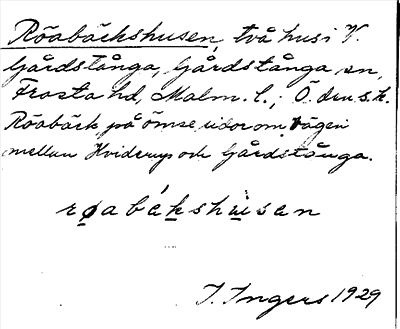 Röabäckshusen, två hus i V.
Gårdstånga, Gårdstånga sn,
Frosta hd, Malm. l.; Ö. den s. k.
Röabäck på ömse sidor om vägen
mellan Hviderup och Gårdstånga.
røabákshu̇sen
I. Ingers 1929